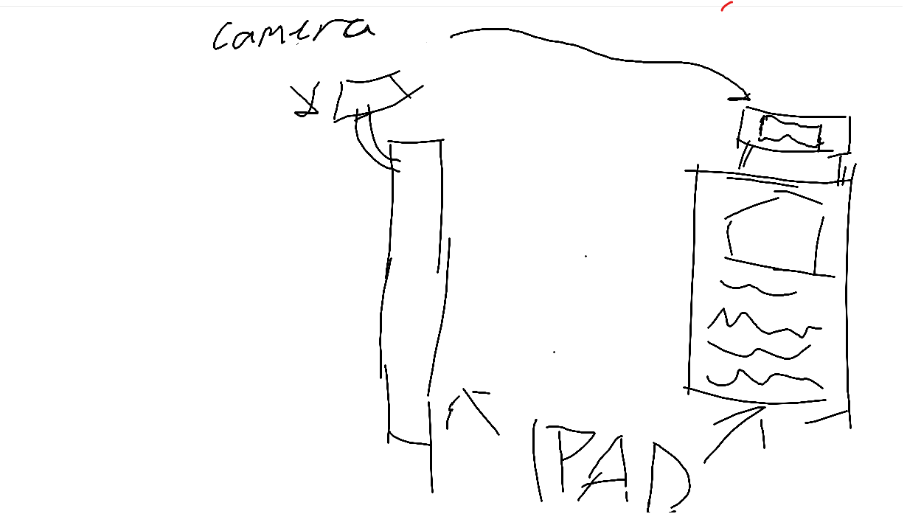 camera
IPAD